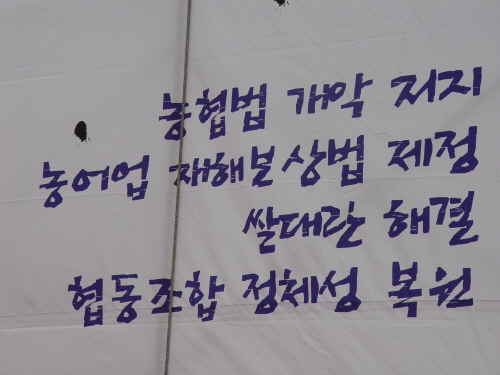 농협법 개악 저지
농어업 재해보상법 제정
쌀대란 해결
협동조합 정체성 복원